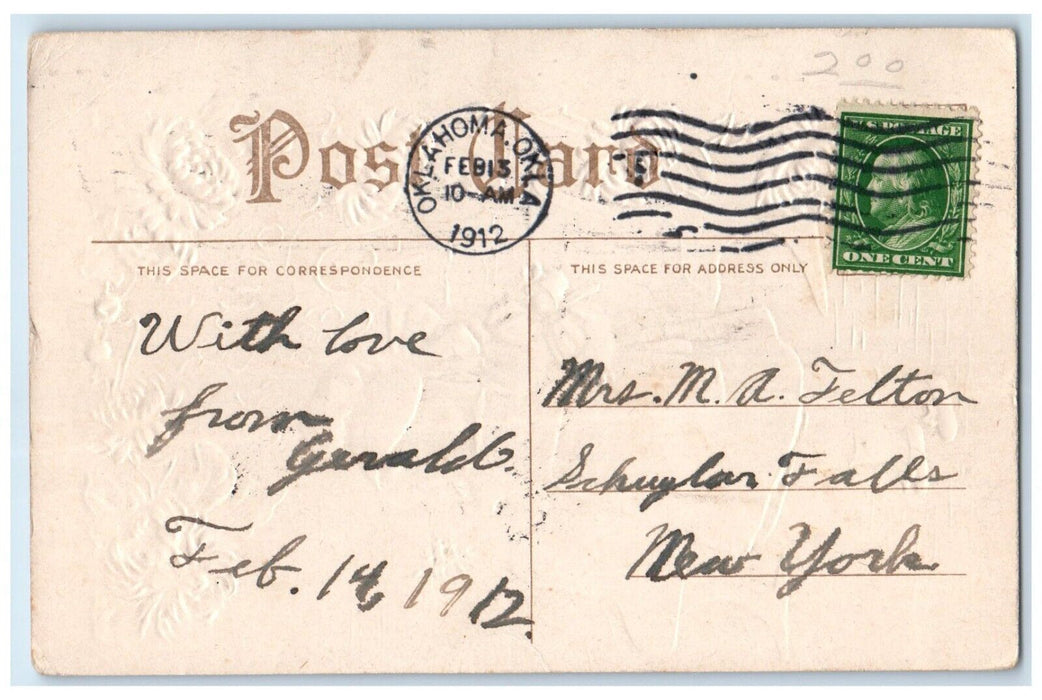 200
Post Card
OKLAHOMA, OKLA
FEB 13
10-AM
1912
U.S. POSTAGE
ONE CENT
THIS SPACE FOR CORRESPONDENCE
THIS SPACE FOR ADDRESS ONLY
With love
from
Gerald.
Feb. 14, 1912.
Mrs. M. A. Felton
Schuylar Falls
New York